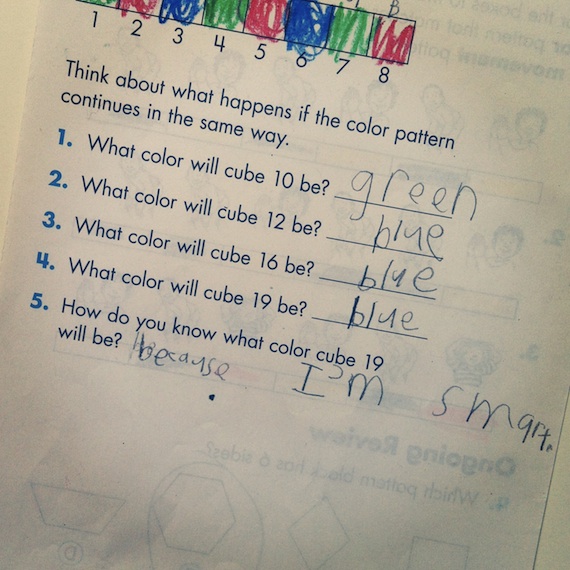 B
1 2 3 4 5 6 7 8
Think about what happens if the color pattern
continues in the same way.
1. What color will cube 10 be? green
2. What color will cube 12 be? blue
3. What color will cube 16 be? blue
4. What color will cube 19 be? blue
5. How do you know what color cube 19
will be? because I'm smart.
Ongoing Review
4. Which pattern block has 6 sides?